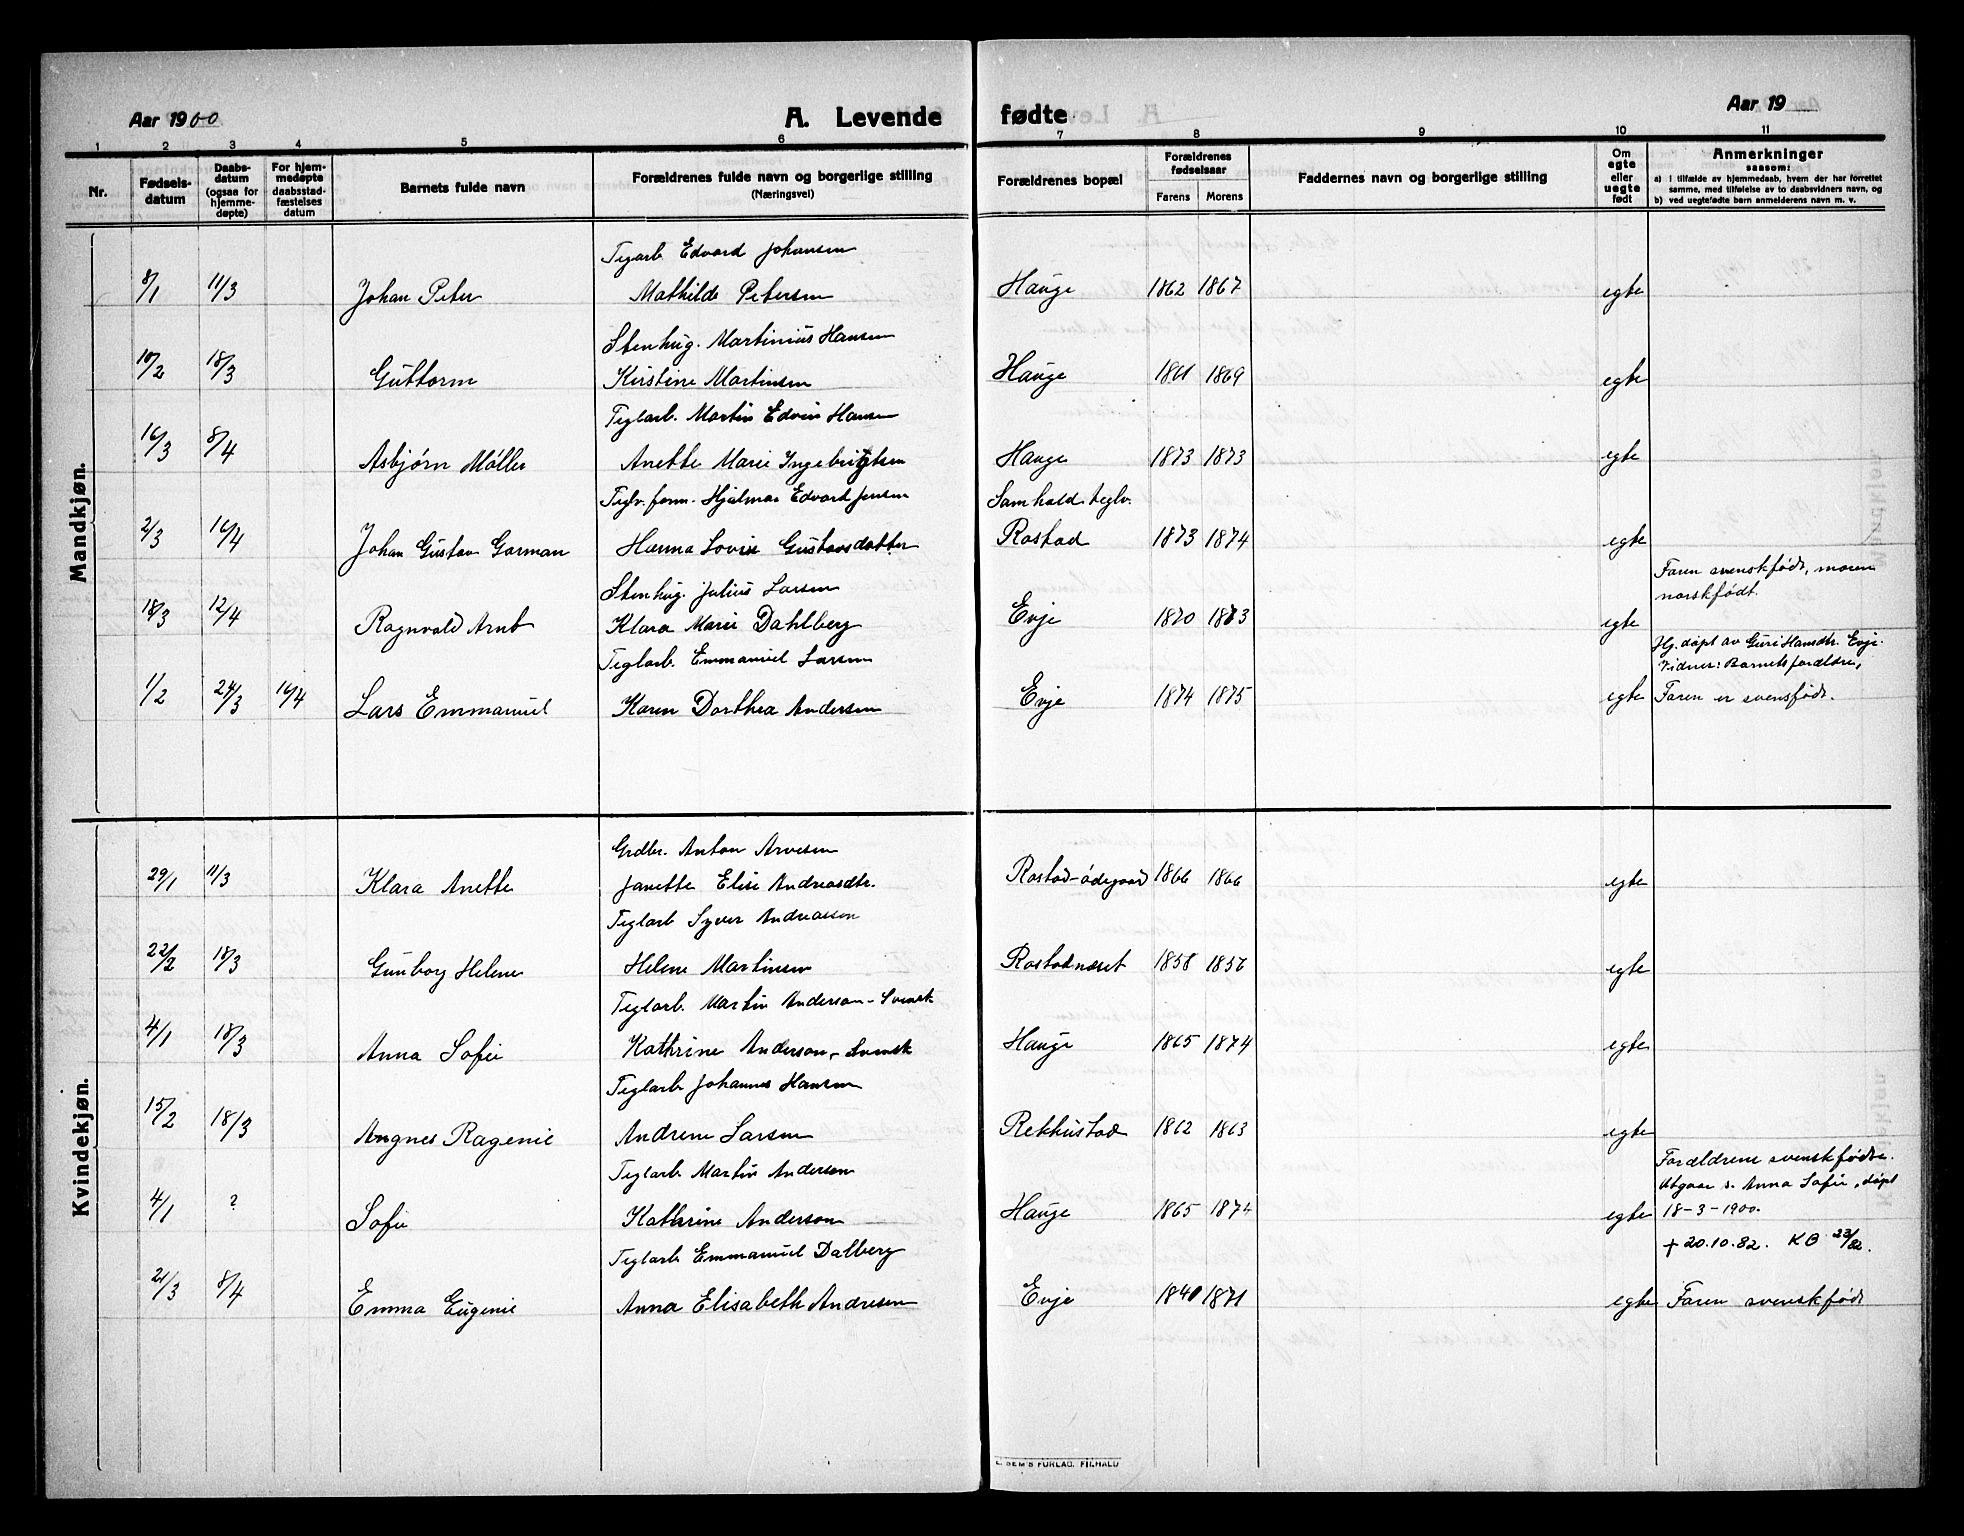 Aar 1900
A. Levende
fødte
Aar 19
1 2 3 4 5 6 7 8 9 10 11
Nr.
Fødsels-
datum
Daabs-
datum
(ogsaa for
hjemme-
døpte)
For hjem-
medøpte
daabsstad-
fæstelses
datum
Barnets fulde navn
Forældrenes fulde navn og borgerlige stilling
(Næringsvei)
Forældrenes bopæl
Forældrenes
fødselsaar
Farens Morens
Faddernes navn og borgerlige stilling
Om
egte
eller
uegte
født
Anmerkninger
sansom:
a) i tilfælde av hjemmedaab, hvem der har forrettet
samme, med tilføielse av to daabsvidners navn, og
b) ved uegtefødte barn anmelderens navn m. v.
Mandkjøn.
Tegarb. Edvard Johansen
8/1 11/3 Johan Peter Mathilde Petersen Hauge 1862 1867 egte
Stenhug. Martinius Hansen
10/2 18/3 Guttorm Kirstine Martinsen Hauge 1861 1869 egte
Teglarb. Martin Edvin Hansen
16/3 8/4 Asbjørn Møller Anette Marie Ingebrigtsen Hauge 1873 1873 egte
Teglv. form. Hjalmar Edvard Jensen Samhold teglv.
2/3 16/4 Johan Gustav Gorman Hanna Lovise Gustavsdatter Rostad 1873 1874 egte
Faren svenskfødt, moren
norskfødt.
Stenhug. Julius Larsen
18/3 12/4 Ragnvald Arnt Klara Marie Dahlberg Evje 1870 1873 egte
Hj. døpt av Guri Hansdtr. Evje.
Vidner: Barnets forældre,
Teglarb. Emmanuel Larsen
1/2 24/3 16/4 Lars Emmanuel Karen Dorthea Andersen Evje 1874 1875 egte Faren er svensfødt.
Kvindekjøn.
Grdbr. Anton Arvesen
29/1 11/3 Klara Anette Janette Elise Andreasdtr. Rostad-ødegaard 1866 1866 egte
Teglarb Syver Andreassen
22/2 18/3 Gunborg Helene Helene Martinsen Rostadnæset 1858 1856 egte
Teglarb. Martin Anderson - Svensk
4/1 18/3 Anna Sofie Kathrine Anderson - Svensk Hauge 1865 1874 egte
Teglarb Johannes Hansen
15/2 18/3 Angnes Ragenie Andrene Larsen Rekkustad 1862 1863 egte
Forældrene svenskfødte.
Utgaar s. Anna Sofie, døpt
18-3-1900.
Teglarb Martin Anderson
4/1 ? Sofie Kathrine Anderson Hauge 1865 1874 egte
+ 20.10.82. KB 23/82.
Teglarb Emmanuel Dalberg
21/3 8/4 Emma Eugenie Anna Elisabeth Andresen Evje 1840 1871 egte Faren svenskfødt
E. SEM'S FORLAG. F.HALD